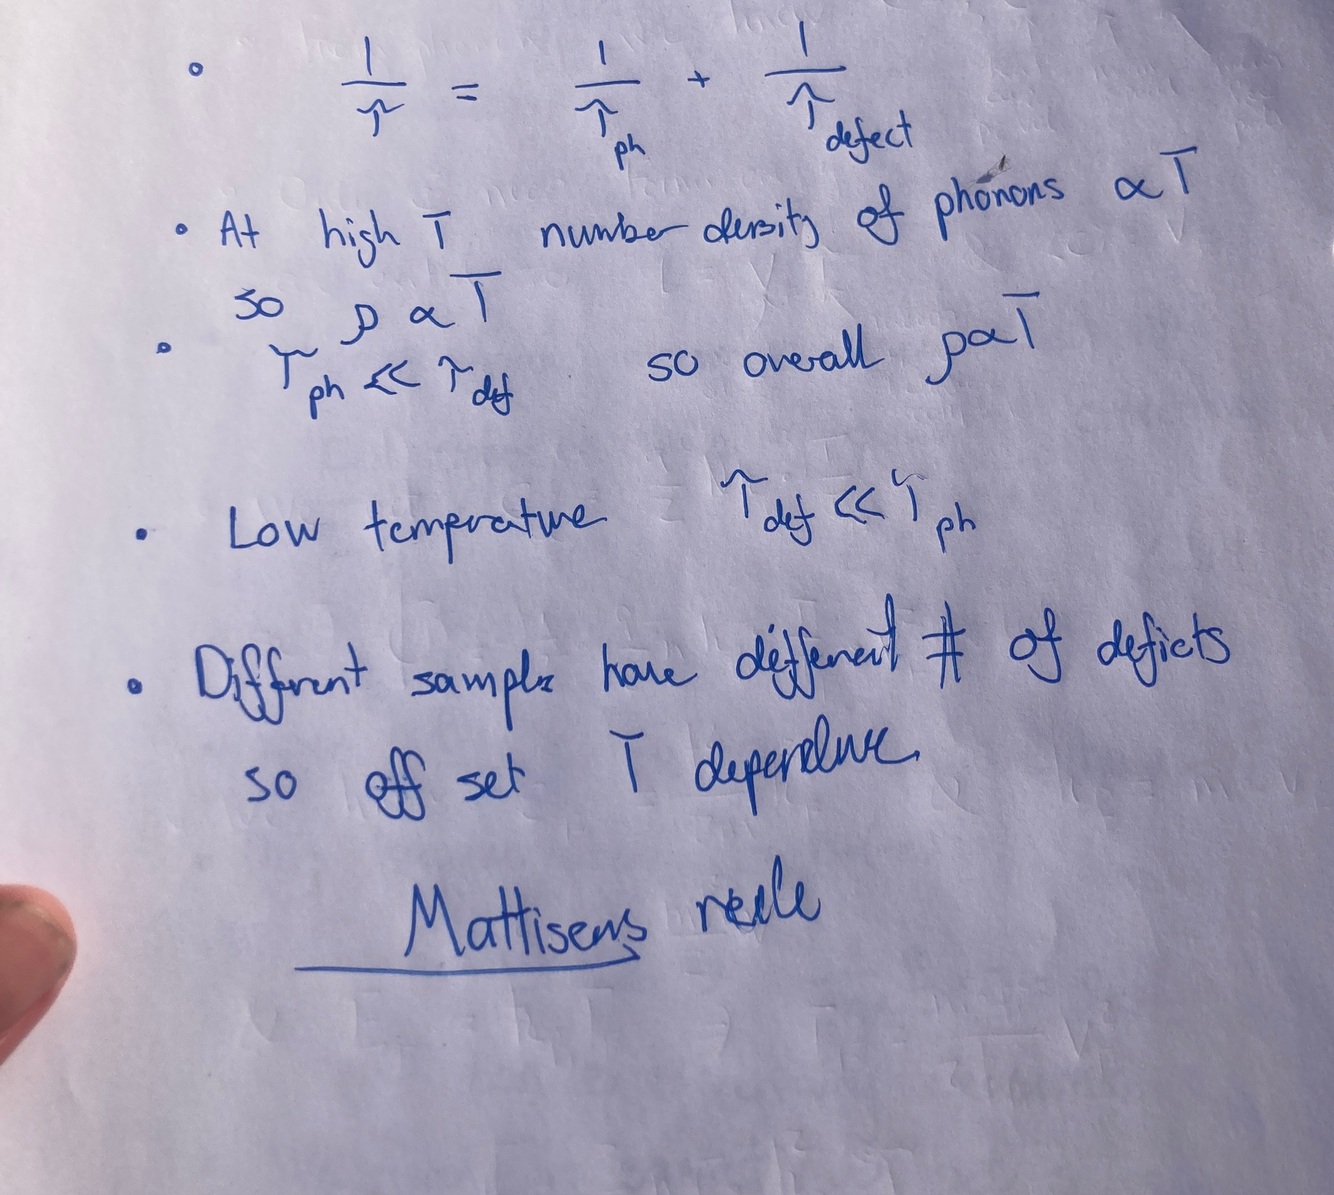 • 1/τ = 1/τ_ph + 1/τ_defect
• At high T number density of phonons ∝ T
so ρ ∝ T
• τ_ph << τ_def so overall ρ∝T
• Low temperature τ_def << τ_ph
• Different sample have different # of defects
so off set T dependence.
Mattisens rule